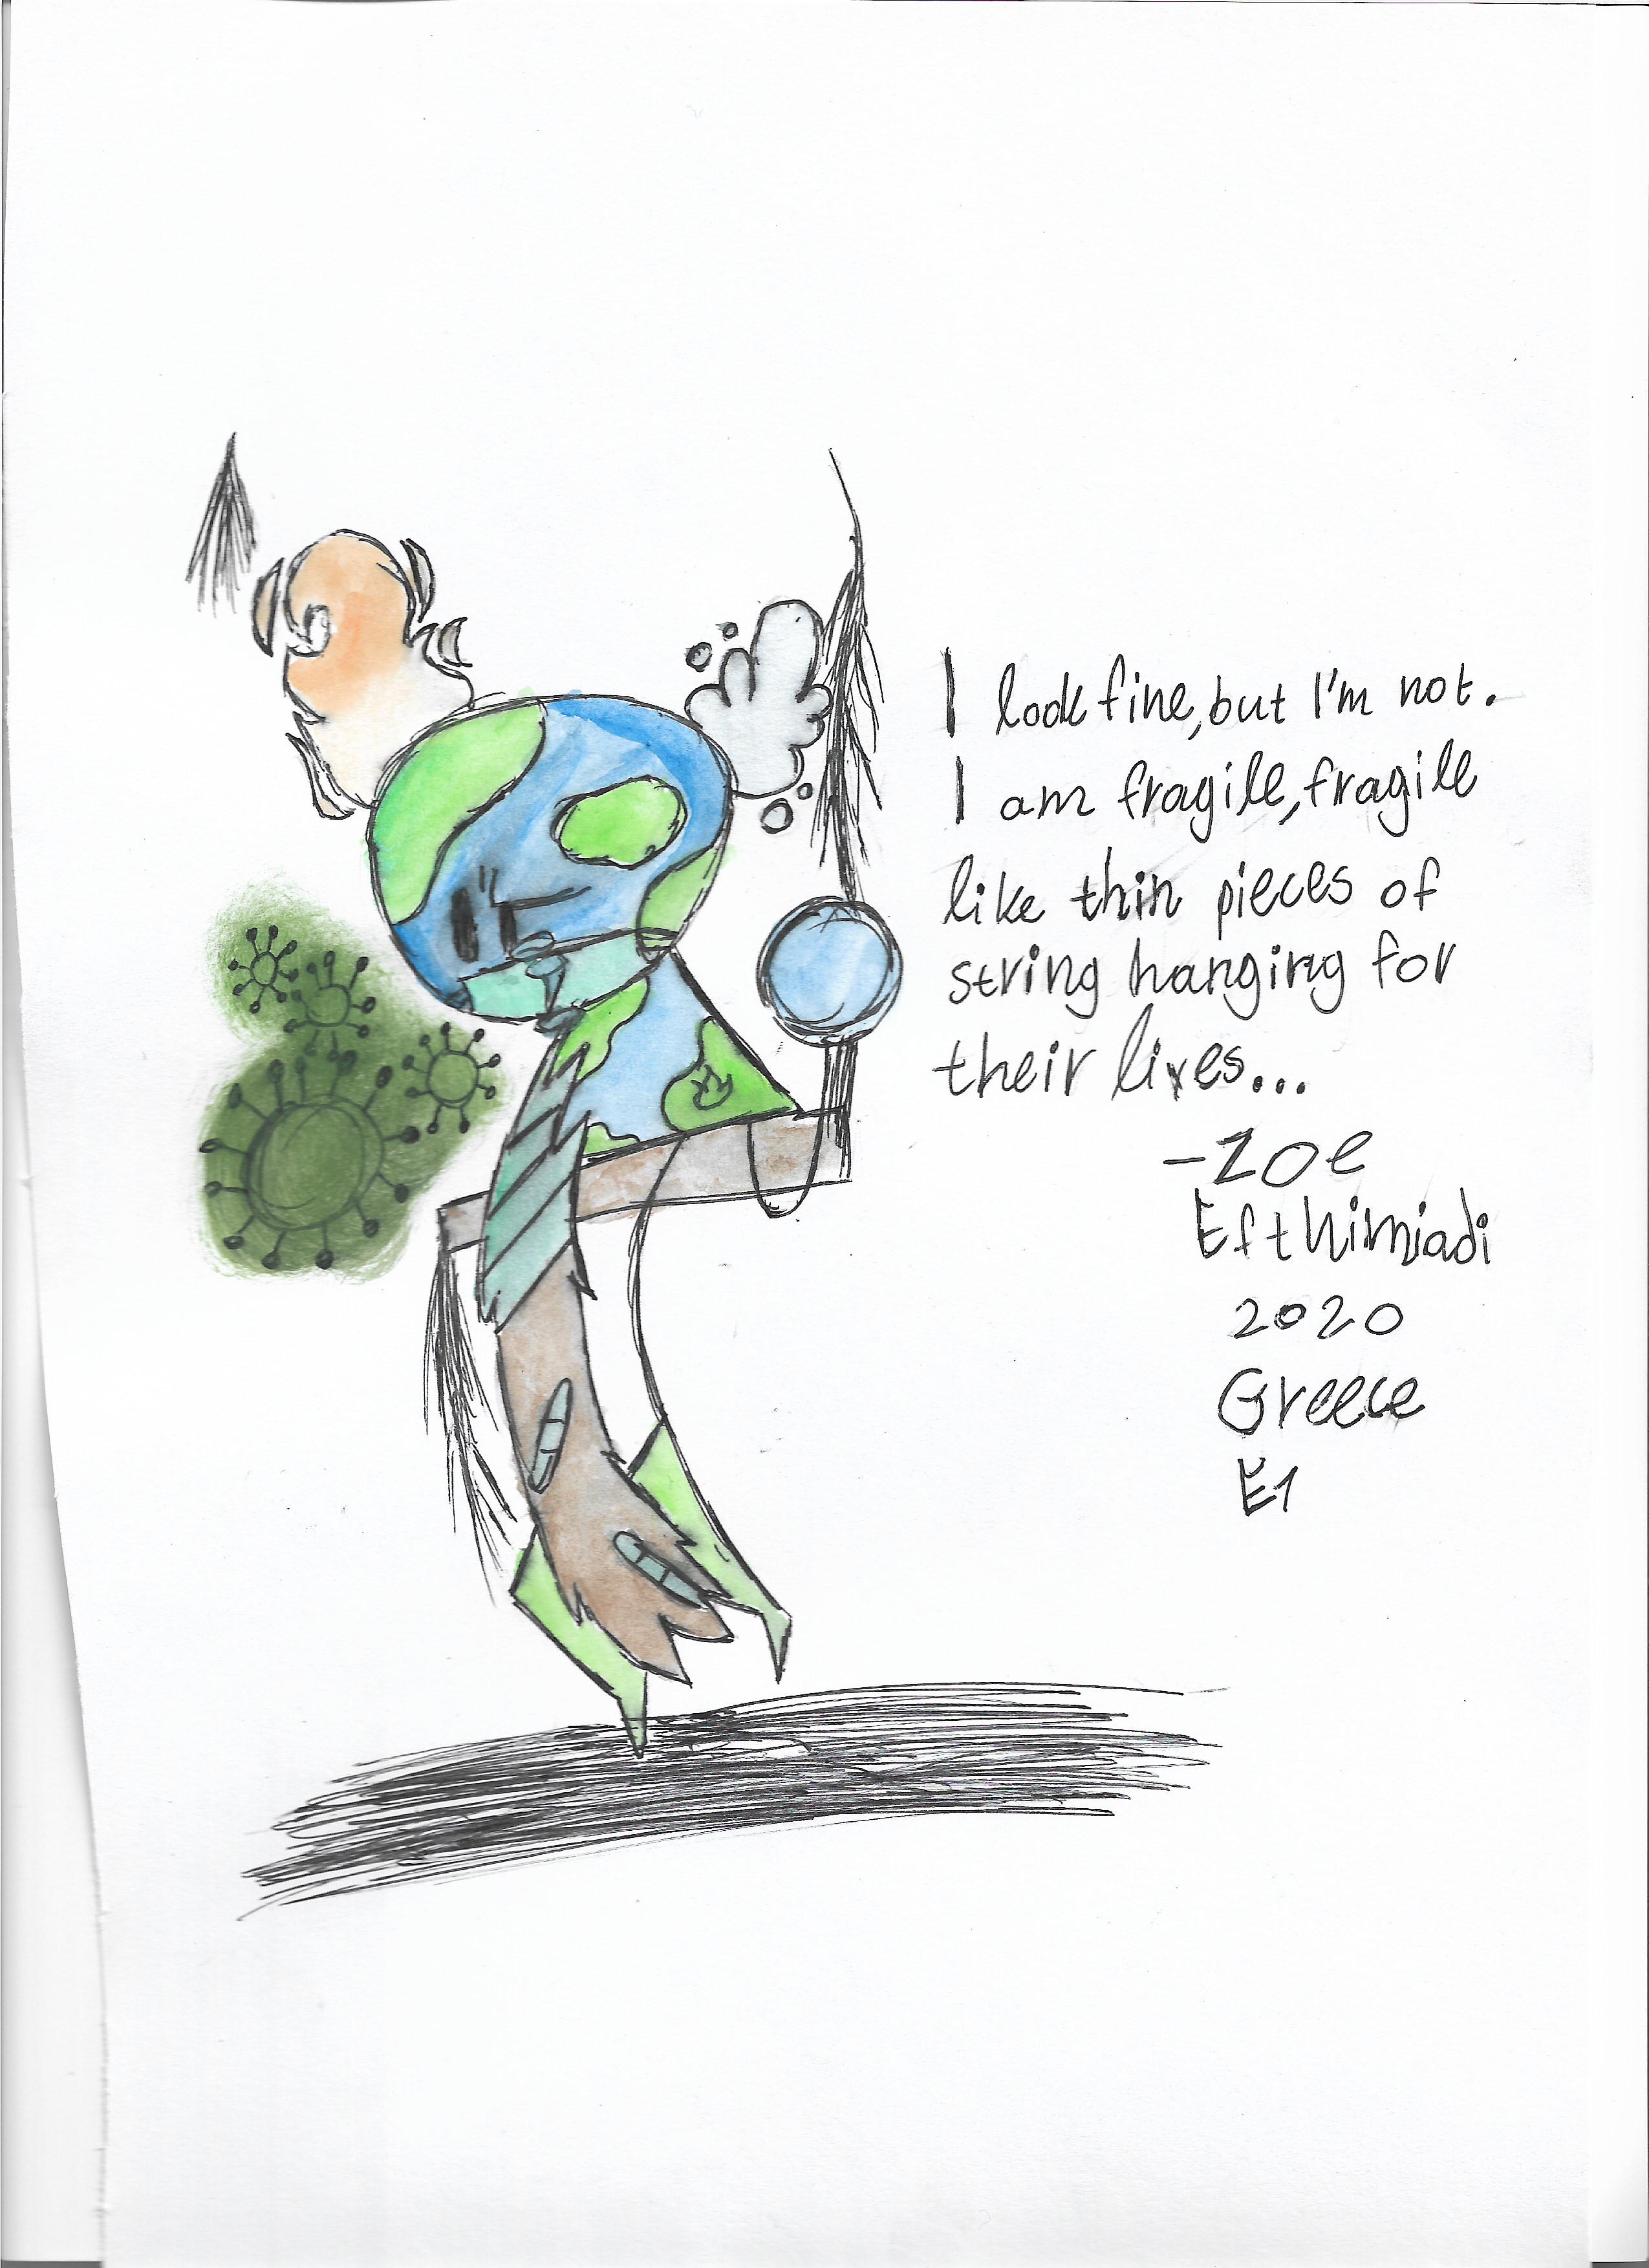 I look fine, but I'm not.
I am fragile, fragile
like thin pieces of
string hanging for
their lives...
-Zoe
Efthimiadi
2020
Greece
E1